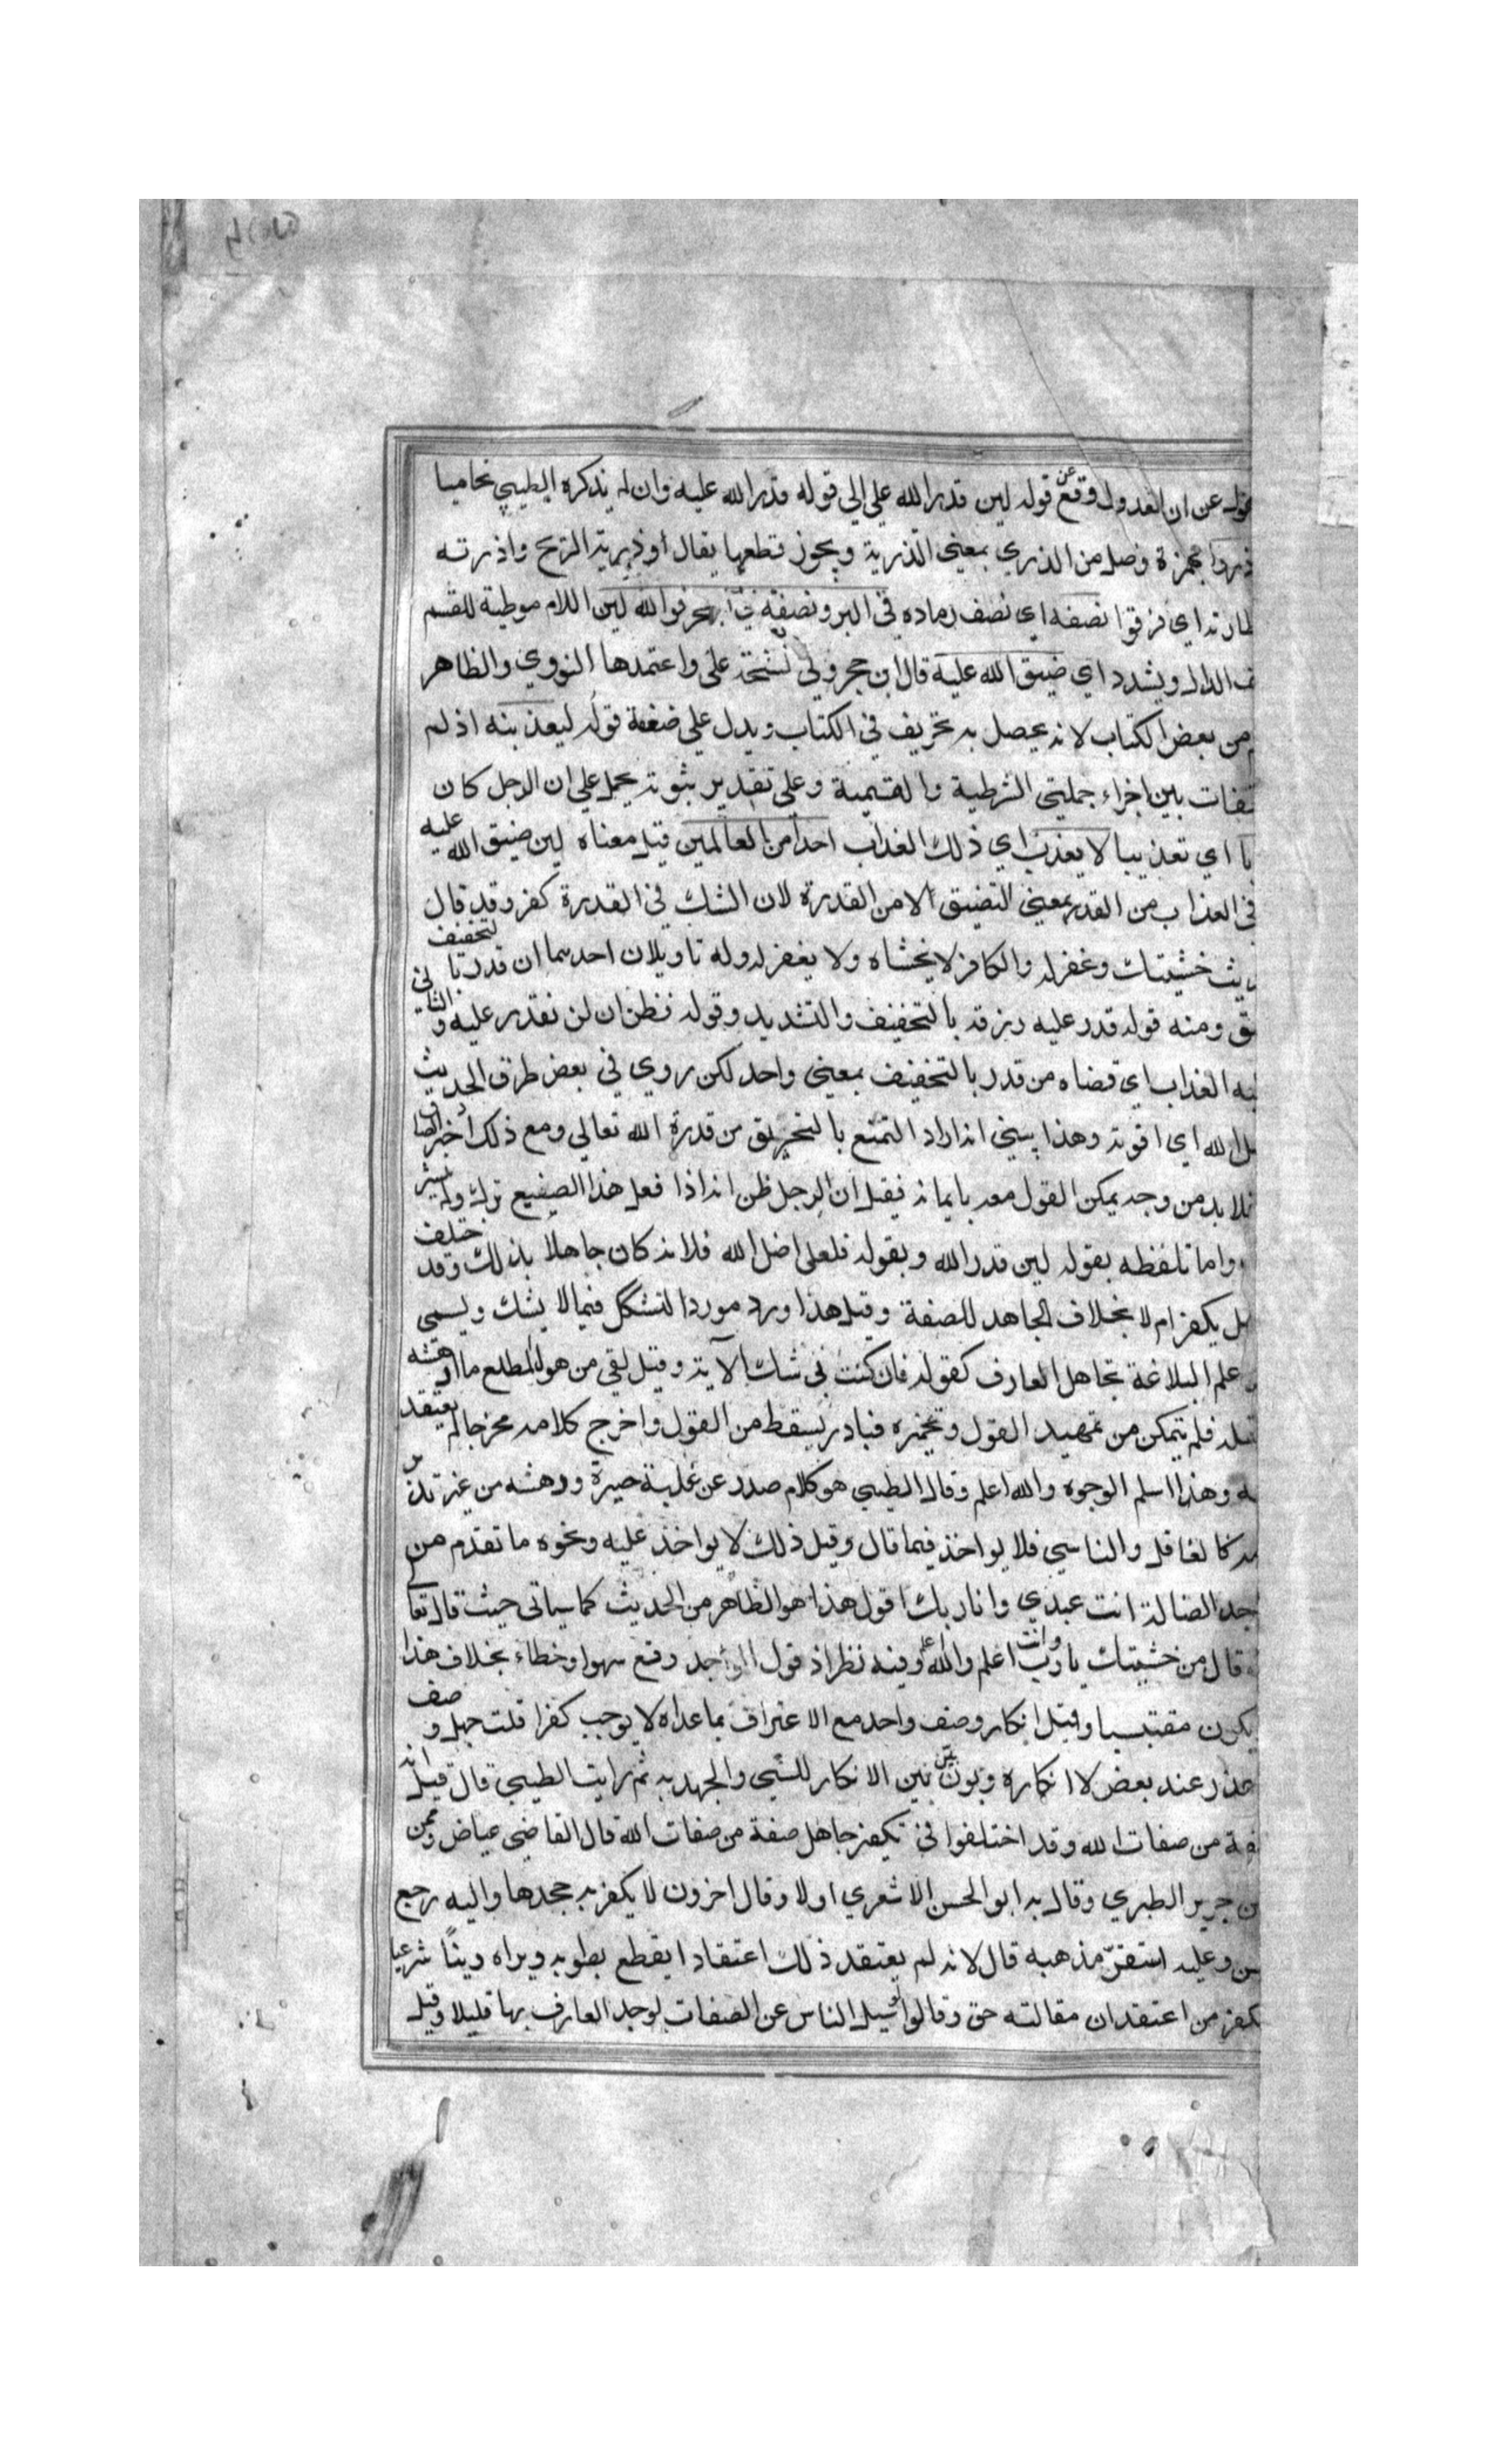 عن ان العدول وقع عن قوله لين قدر الله علي الي قوله قدر الله عليه وان لم يذكره الطيبي تحاميا
بهمزة وصل من الذري بمعني التذرية ويجوز قطعها يقال اوذريته الريح واذرته
اي فرقوا نصفه اي نصف رماده في البر ونصفه في البحر فوالله لين اللام موطية للقسم
الدال ويشدد اي ضيق الله عليه قال ابن حجر وفي نسخة علي واعتمدها النووي والظاهر
من بعض الكتاب لانه يحصل به تحريف في الكتاب ويدل علي ضعفه قوله ليعذبنه اذ لم
بين اجزاء جملتي الشرطية والقسمية وعلي تقدير ثبوته يحمل علي ان الرجل كان
اي تعذيبا لا يعذب اي ذلك العذاب احدا من العالمين قيل معناه لين ضيق الله عليه
في العذاب من القدر بمعني التضيق لا من القدرة لان الشك في القدرة كفر وقد قال
خشيتك وغفر له والكافر لا يخشاه ولا يغفر له وله تاويلان احدهما ان قدر بالتخفيف
ومنه قوله قدر عليه رزقه بالتخفيف والتشديد وقوله فظن ان لن نقدر عليه والثاني
العذاب اي قضاه من قدر بالتخفيف بمعني واحد لكن روي في بعض طرق الحديث
الله اي افوته وهذا ينبي انه اراد التمنع بالتحريق من قدرة الله تعالي ومع ذلك اخبر الصادق
فلا بد من وجه يمكن القول معه بايمانه فقيل ان الرجل ظن انه اذا فعل هذا الصنيع ترك ولم ينشر
واما تلفظه بقوله لين قدر الله وبقوله فلعلي اضل الله فلانه كان جاهلا بذلك وقد اختلف
يكفر ام لا بخلاف الجاهد للصفة وقيل هذا ورد مورد التشكك فيما لا يشك ويسمي
علم البلاغة تجاهل العارف كقوله فان كنت في شك الآية وقيل لقي من هول المطلع ما ادهشه
فلم يتمكن من تمهيد القول وتخميره فبادر بسقط من القول واخرج كلامه مخرجا لم يعتقد
وهذا اسلم الوجوه والله اعلم وقال الطيبي هو كلام صدر عن غلبة حيرة ودهشه من غير تدبر
كالغافل والناسي فلا يواخذ فيما قال وقيل ذلك لا يواخذ عليه ونحوه ما تقدم من
الضالة انت عبدي وانا ربك اقول هذا هو الظاهر من الحديث كما سياتي حيث قال تعا
قال من خشيتك يا رب وانت اعلم والله اعلم وفيه نظر اذ قول الواجد وقع سهوا وخطاء بخلاف هذا
يكون مقتبسا وقيل انكار وصف واحد مع الاعتراف بما عداه لا يوجب كفرا قلت جهل وصف
عذر عند بعض لا انكاره وبون بين بين الانكار للشي والجهد به ثم رايت الطيبي قال قيل انه
من صفات الله وقد اختلفوا في تكفير جاهل صفة من صفات الله قال القاضي عياض وممن
جرير الطبري وقال به ابو الحسن الاشعري اولا وقال اخرون لا يكفر به جحدها واليه رجع
وعليه استقر مذهبه قال لانه لم يعتقد ذلك اعتقادا يقطع بصوابه ويراه دينا شرعيا
من اعتقد ان مقالته حق وقالوا لو سيل الناس عن الصفات لوجد العارف بها قليلا وقيل